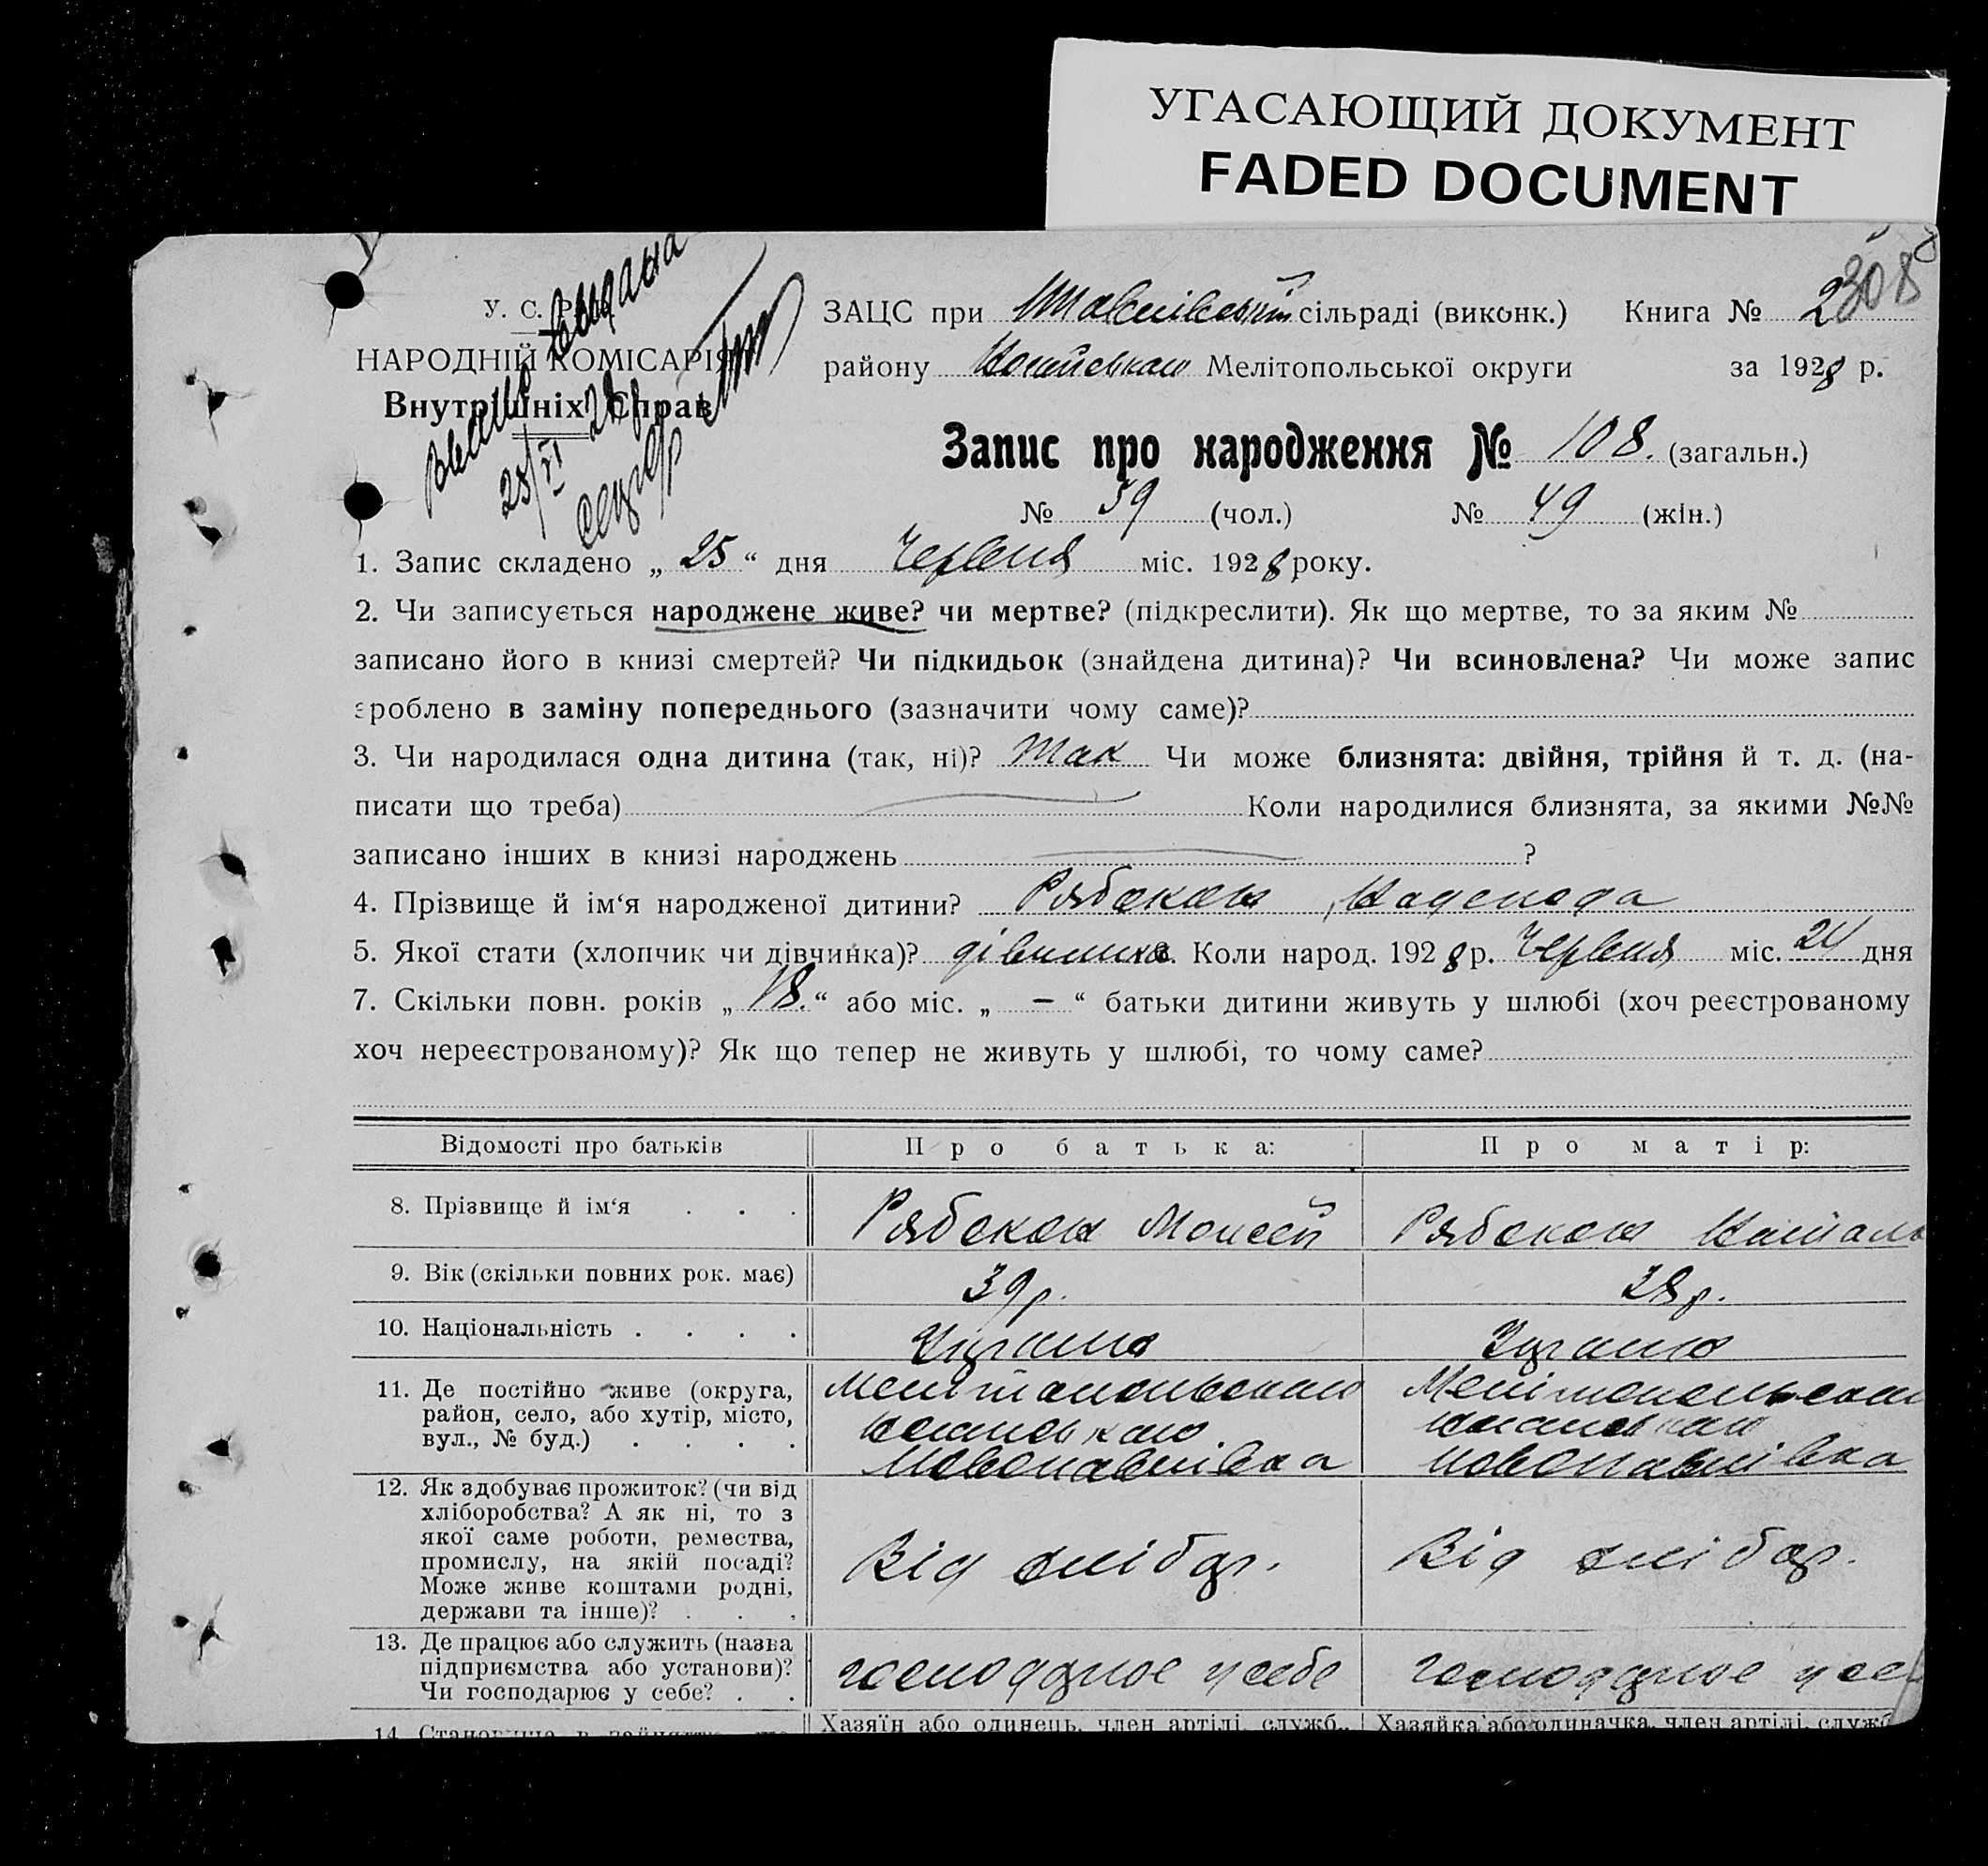 УГАСАЮЩИЙ ДОКУМЕНТ
FADED DOCUMENT
308
У. С. Р. Р.
НАРОДНІЙ КОМІСАРІЯТ
Внутрішніх Справ
25/VI 28
ЗАЦС при сільраді (виконк.) Книга № 2
району Мелітопольської округи за 1928 р.
Запис про народження № 108. (загальн.)
№ 59 (чол.) № 49 (жін.)
1. Запис складено „ 25 “ дня Червня міс. 1928 року.
2. Чи записується народжене живе? чи мертве? (підкреслити). Як що мертве, то за яким №
записано його в книзі смертей? Чи підкидьок (знайдена дитина)? Чи всиновлена? Чи може запис
зроблено в заміну попереднього (зазначити чому саме)?
3. Чи народилася одна дитина (так, ні)? Так Чи може близнята: двійня, трійня й т. д. (на-
писати що треба) Коли народилися близнята, за якими №№
записано інших в книзі народжень ?
4. Прізвище й ім‘я народженої дитини? Рябоконь Надежда
5. Якої стати (хлопчик чи дівчинка)? дівчинка. Коли народ. 1928 р. Червня міс. 24 дня
7. Скільки повн. років „ 18. “ або міс. „ — “ батьки дитини живуть у шлюбі (хоч реєстрованому
хоч нереєстрованому)? Як що тепер не живуть у шлюбі, то чому саме?
Відомості про батьків Про батька: Про матір:
8. Прізвище й ім‘я . . . Рябоконь Моисей Рябоконь Наталь
9. Вік (скільки повних рок. має) 39 р. 38 р.
10. Національність . . . .
11. Де постійно живе (округа, Мелітопольської Мелітопольської
район, село, або хутір, місто,
вул., № буд.) . . . . Новопавлівка Новопавлівка
12. Як здобуває прожиток? (чи від
хліборобства? А як ні, то з
якої саме роботи, ремества, Від хлібор. Від хлібор.
промислу, на якій посаді?
Може живе коштами родні,
держави та інше)? . . .
13. Де працює або служить (назва
підприємства або установи)? господарює у себе господарює у себ
Чи господарює у себе? . .
14. Становище в занятті Хазяїн або одинець, член артілі, служб., Хазяйка або одиначка, член артілі, служб